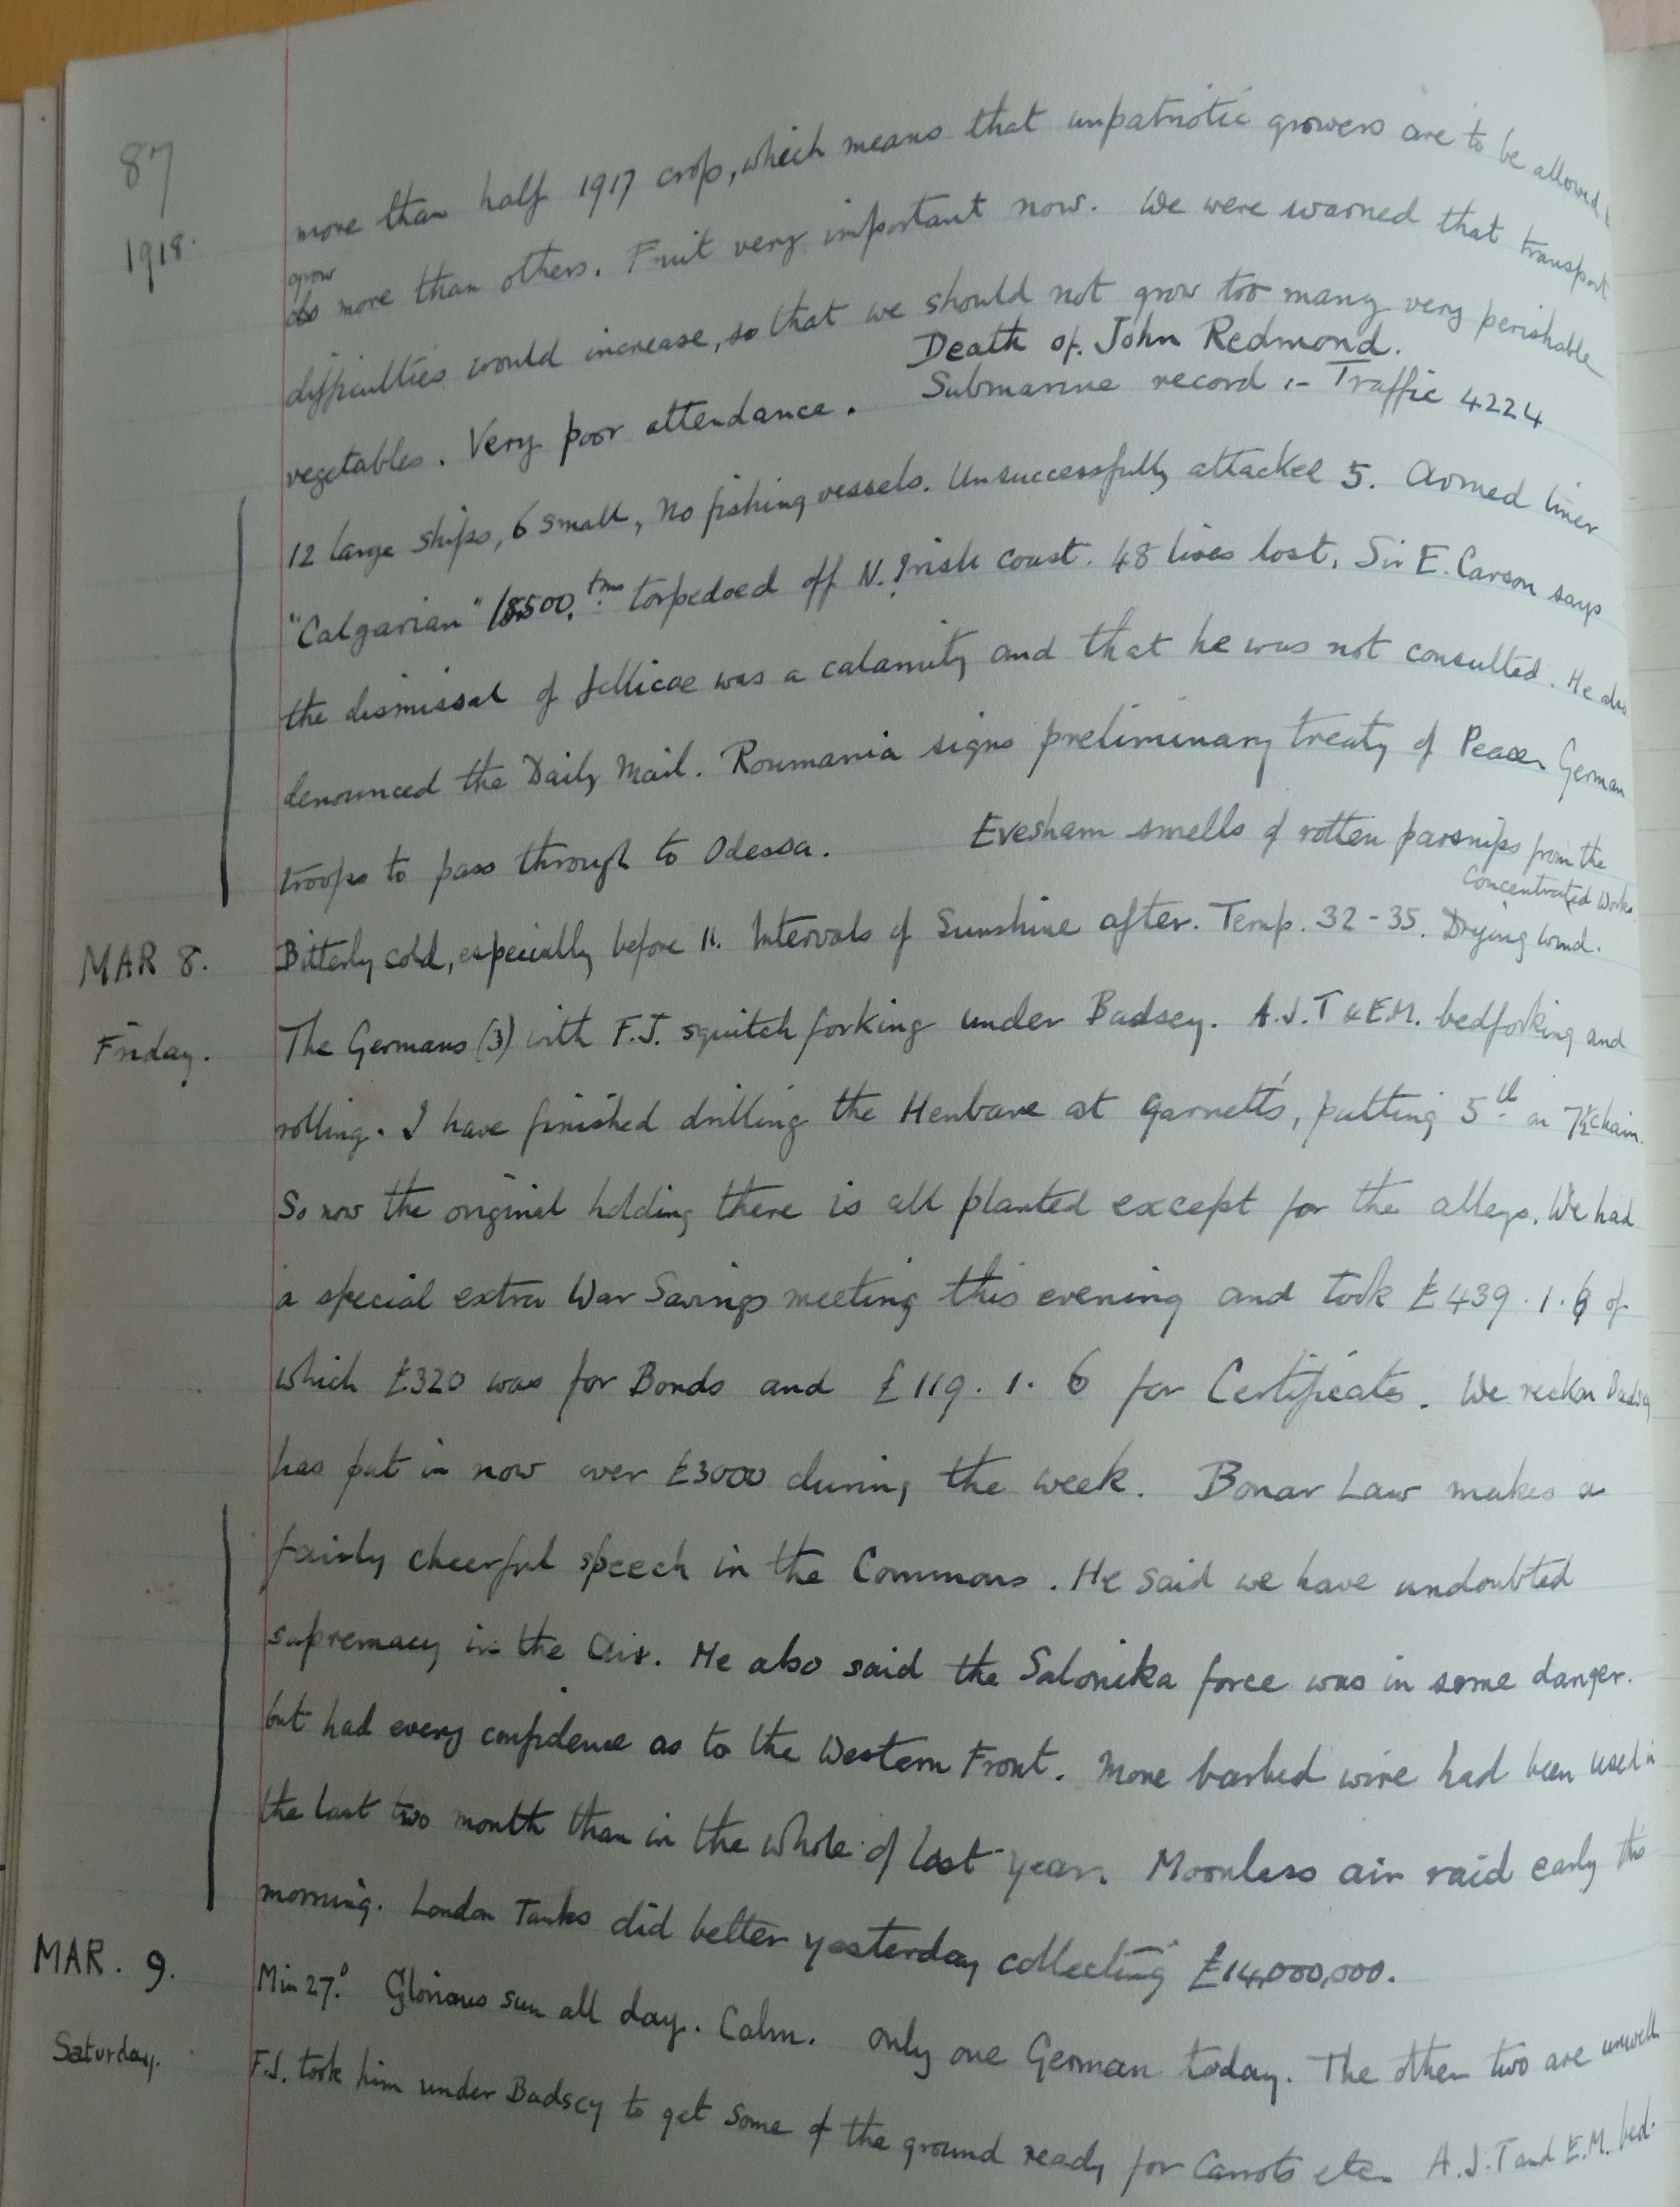 87
1918.
more than half 1917 crop, which means that unpatriotic growers are to be allowed
grow
do more than others. Fruit very important now. We were warned that transport
difficulties would increase, so that we should not grow too many very perishable
vegetables. Very poor attendance. Death of John Redmond.
Submarine record :- Traffic 4224
12 large ships, 6 small, No fishing vessels. Unsuccessfully attacked 5. Armed liner
"Calgarian" 18500 tons torpedoed off N. Irish coast. 48 lives lost. Sir E. Carson says
the dismissal of Jellicoe was a calamity and that he was not consulted. He also
denounced the Daily Mail. Roumania signs preliminary treaty of Peace. German
troops to pass through to Odessa. Evesham smells of rotten parsnips from the
Concentrated Works.
MAR 8. Bitterly cold, especially before 11. Intervals of Sunshine after. Temp. 32-35. Drying wind.
Friday. The Germans (3) with F.J. squitch forking under Badsey. A.J.T & E.M. bedforking and
rolling. I have finished drilling the Henbane at Garnett's, putting 5 th on 7½ chain.
So now the original holding there is all planted except for the alleys. We had
a special extra War Savings meeting this evening and took £439.1.6 of
which £320 was for Bonds and £119.1.6 for Certificates. We reckon Badsey
has put in now over £3000 during the week. Bonar Law makes a
fairly cheerful speech in the Commons. He said we have undoubted
supremacy in the Air. He also said the Salonika force was in some danger.
but had every confidence as to the Western Front. More barbed wire had been used in
the last two month than in the whole of last year. Moonless air raid early this
morning. London Tanks did better yesterday collecting £14,000,000.
MAR. 9. Min 27°. Glorious sun all day. Calm. Only one German today. The other two are unwell
Saturday. F.J. took him under Badsey to get some of the ground ready for Carrots etc. A.J.T and E.M. bed-